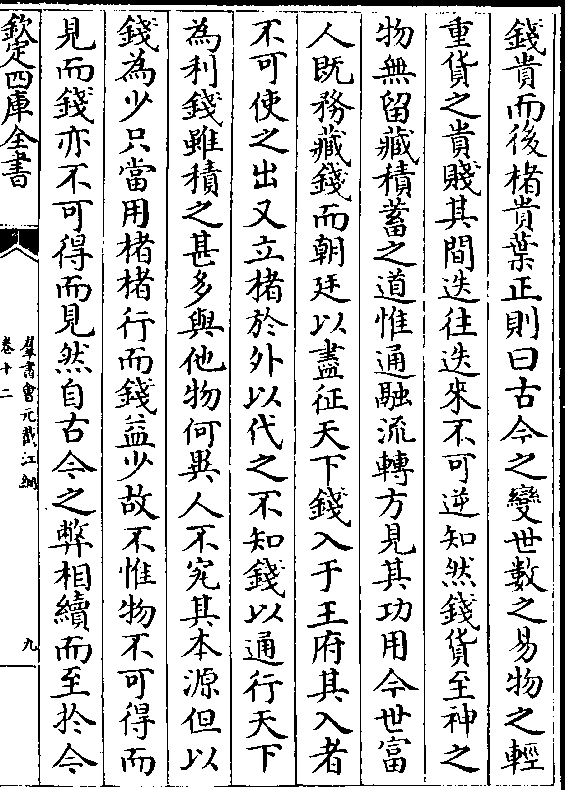 錢貴而後楮貴葉正則曰古今之變世數之易物之輕
重貨之貴賤其間迭往迭來不可逆知然錢貨至神之
物無留藏積蓄之道惟通融流轉方見其功用今世富
人既務藏錢而朝廷以盡征天下錢入于王府其入者
不可使之出又立楮於外以代之不知錢以通行天下
為利錢雖積之甚多與他物何異人不究其本源但以
錢為少只當用楮楮行而錢益少故不惟物不可得而
見而錢亦不可得而見然自古今之弊相續而至於今
欽定四庫全書
羣書會元截江網
卷十二
九